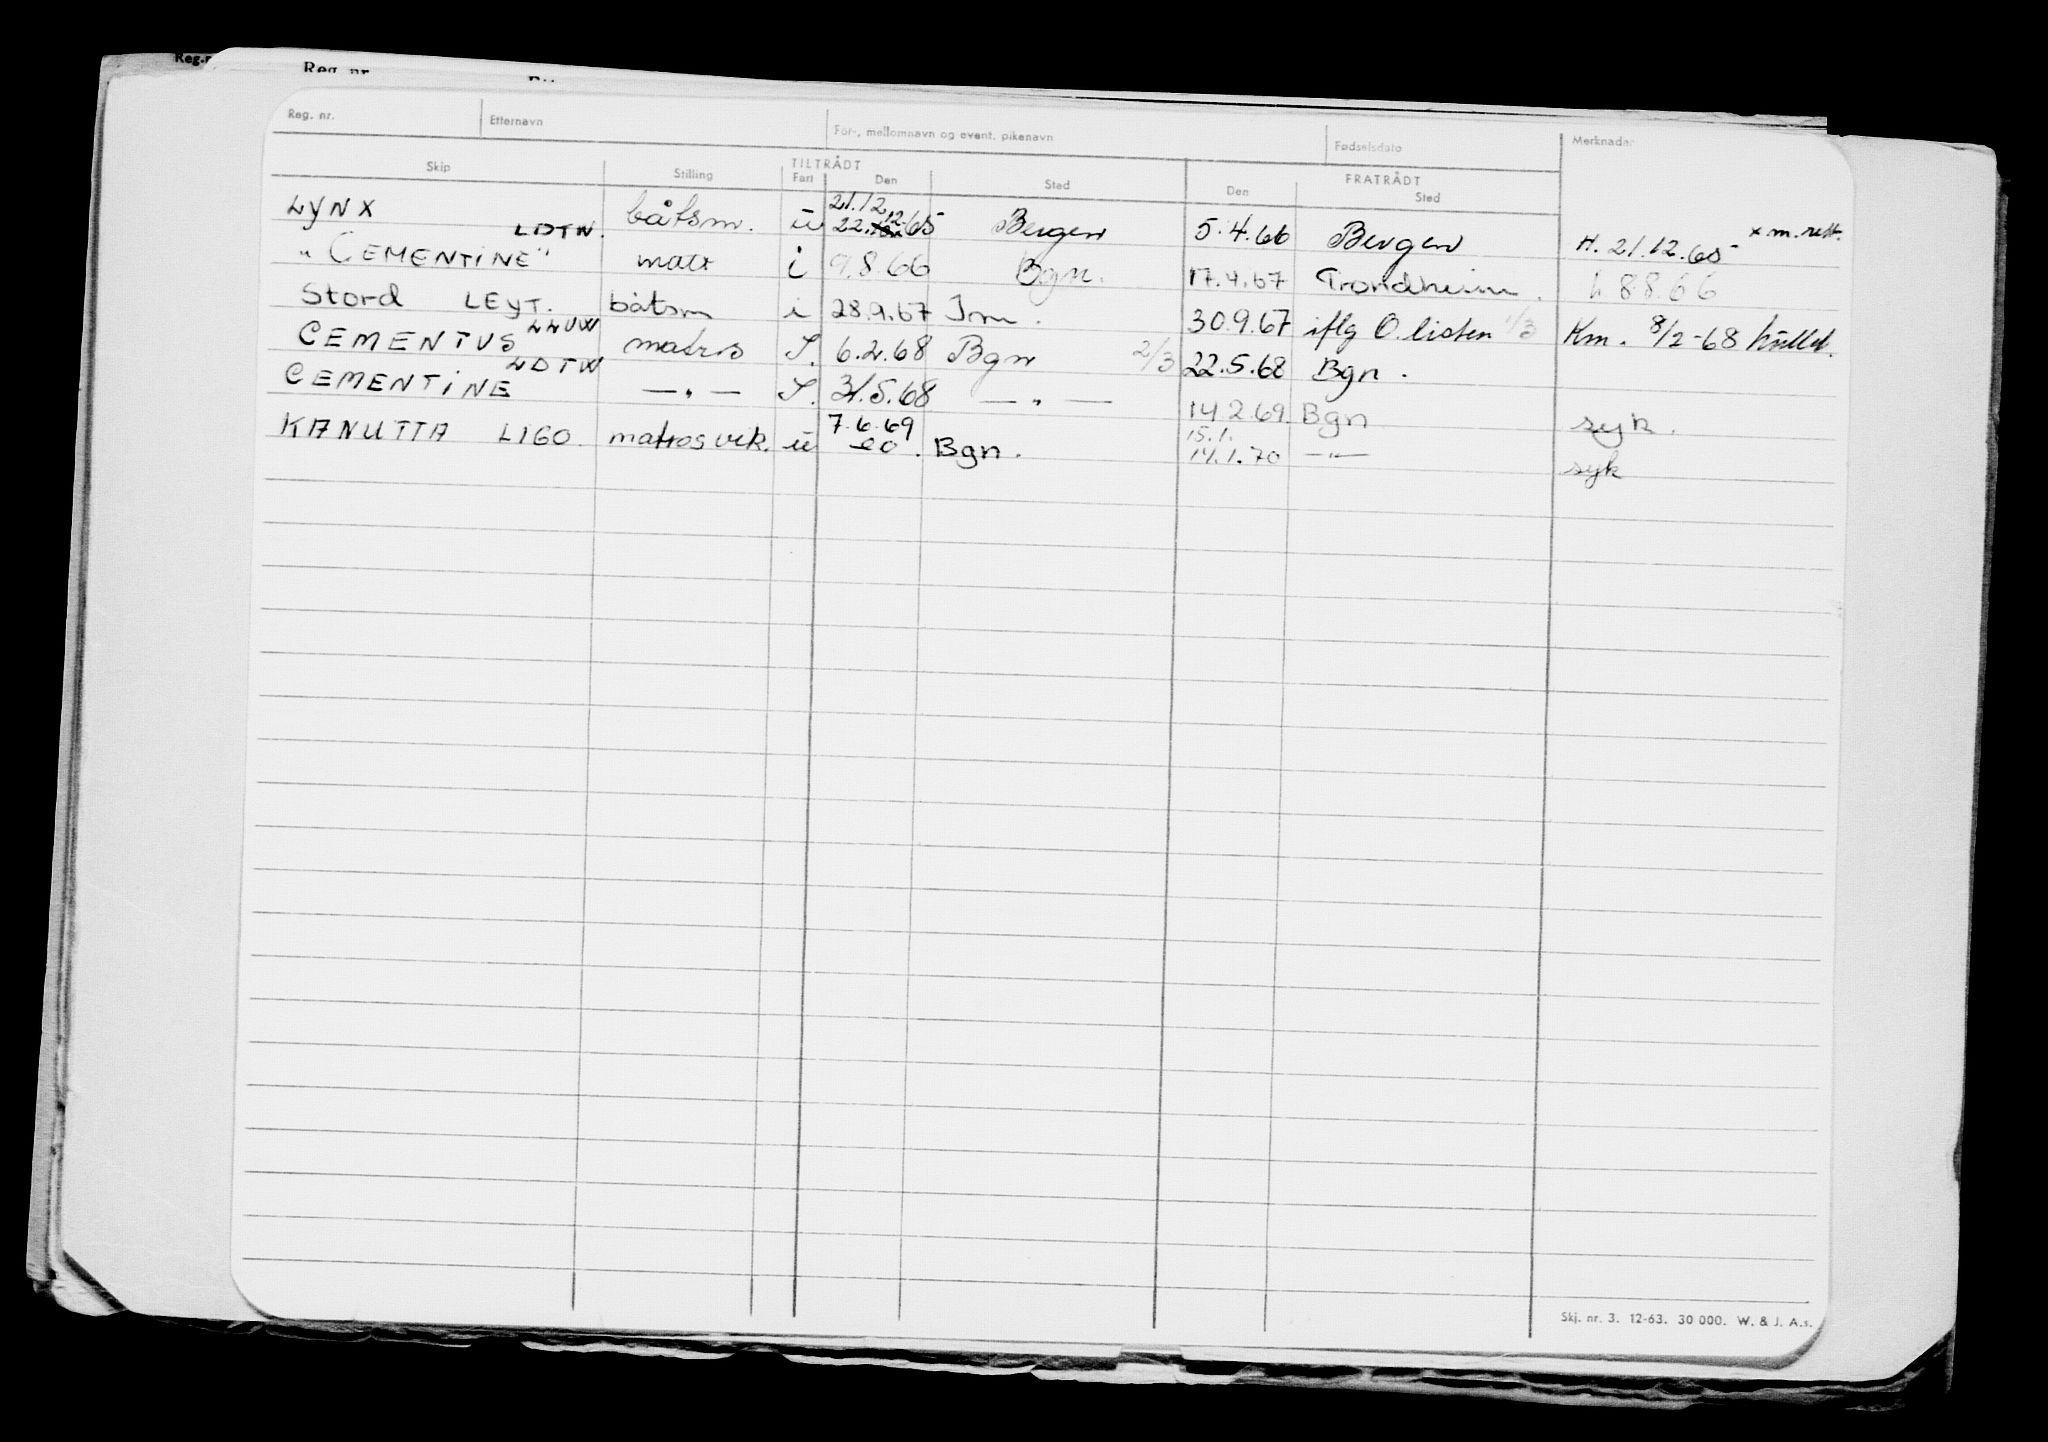 Reg. nr.
Reg. nr. Etternavn For-, mellomnavn og event. pikenavn Fødselsdato Merknader
Skip Stilling TILTRÅDT Fart Den Sted FRATRÅDT Den Sted
LYNX båtsm. u 21.12 22.12.65 Bergen 5.4.66 Bergen H. 21.12.65 x m. rett.
"CEMENTINE" LDTW. matr i 9.8.66 Bgn. 17.4.67 Trondheim. h 8.8.66
Stord LEYT. båtsm i 28.9.67 Jm. 30.9.67 iflg O. listen 1/3 Km. 8/2-68
CEMENTUS LLUW matros S. 6.2.68 Bgn 2/3 22.5.68 Bgn.
CEMENTINE LDTW —"— S. 31.5.68 —"— 14.2.69. Bgn syk.
KANUTTA LIGO. matros vik. u 7.6.69 Bgn. 15.1. 14.1.70 —"— syk
Skj. nr. 3. 12-63. 30 000. W. & J. A.s.